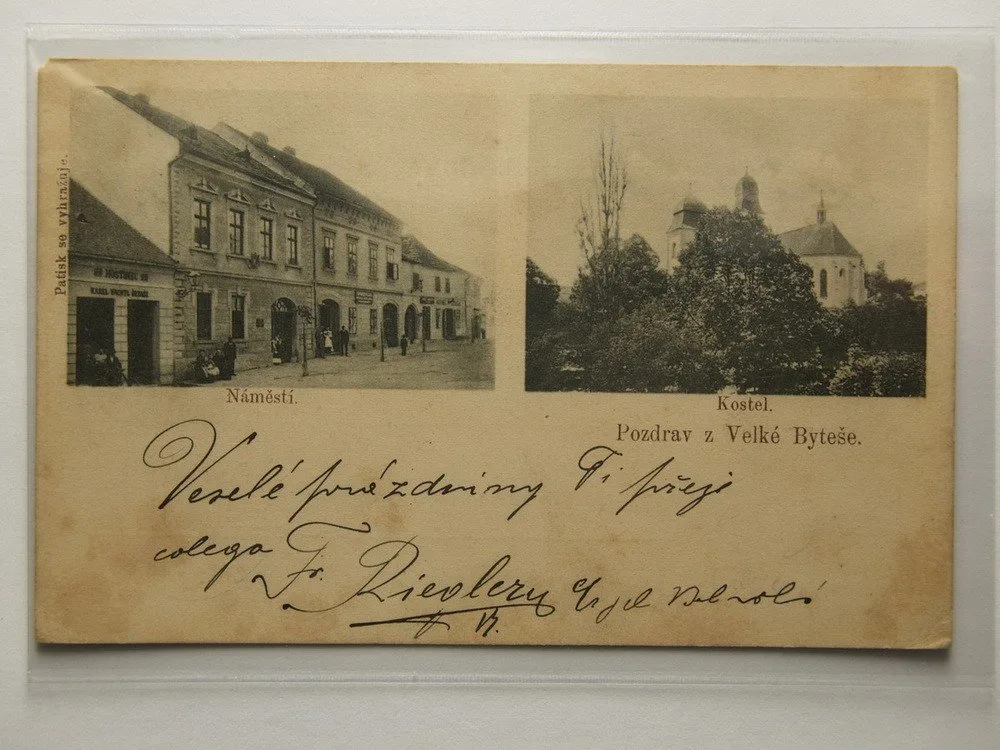 Patisk se vyhražuje.
HOSTINEC
KAREL
Náměstí.
Kostel.
Pozdrav z Velké Byteše.
Veselé prázdniny Ti přeje
colega Fr. Riedlerů